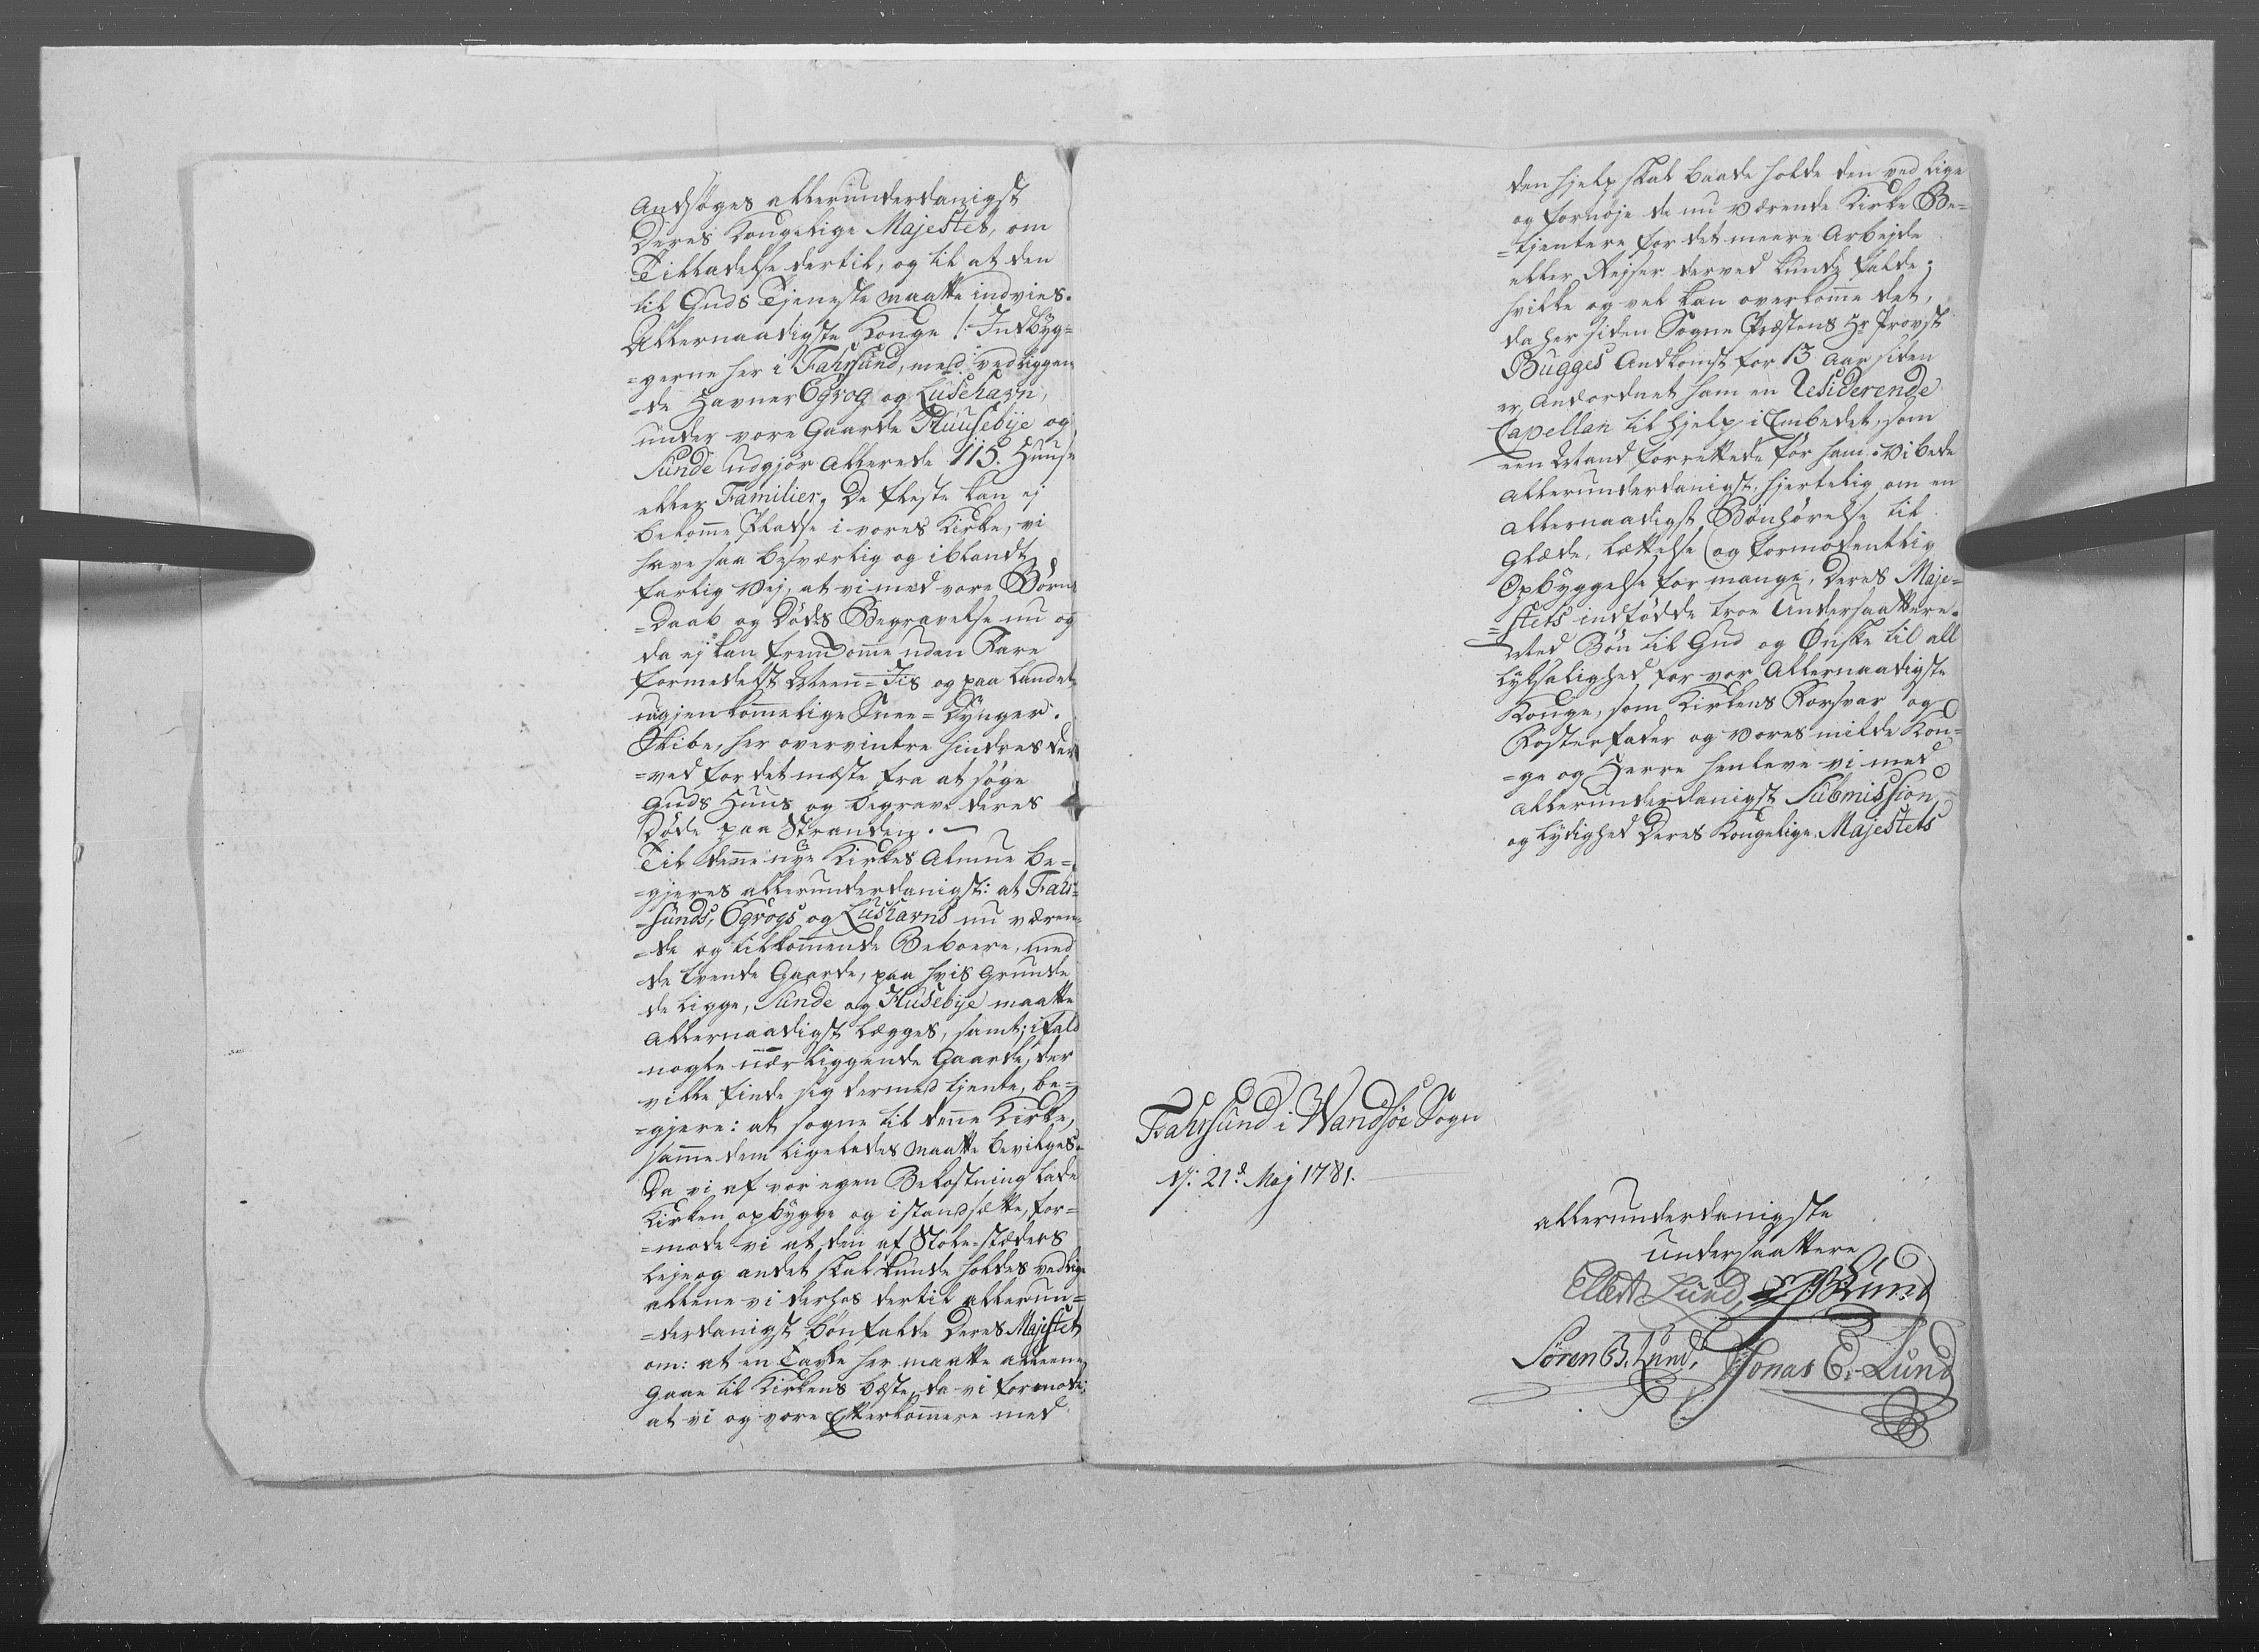 Andsøges allerunderdanigst
Deres Kongelige Majestet, om
Tilladelse dertil, og til at den
til Guds Tjeneste maatte indvies.
Allernaadigste Konge! Indbyg=
=gerne her i Fahrsund, med vedliggen
=de Havner Ogrog og Lusehavn,
under vore Gaarde Huusebye og
Sunde udgjør allerede 115. Huuse
eller Familier. De fleste kan ej
bekomme Pladse i vores Kirke, vi
have saa besværlig og iblandt
farlig Vej, at vi med vore Børne
=Daab og Døds Begravelse nu og
da ej kan fremkomme uden Fare
formedelst Meen=Iis og paa Landet
uigjenkommelige Snee=Dynger.
Skibe, her overvintre hindres der
=ved for det meste fra at søge
Guds Huus og begrave deres
Døde paa Stranden.
Til denne nye Kirkes Almue be=
=gjeres allerunderdanigst: at Fahr=
=sunds, Ogrogs og Lushavns nu væren=
=de og tilkommende Beboere, med
de tvende Gaarde, paa hvis Grunde
de ligge, Sunde og Husebye maatte
allernaadigst lægges, samt, ifald
nogle nærliggende Gaarde, der
ville finde sig dermed tjente, be=
=gjere: at sogne til denne Kirke,
samme dem ligeledes maatte bevilges.
Da vi af vor egen Bekostning lade
Kirken opbygge og istandsætte, for=
=mode vi at den af Stole=stæders
leje og andet skal kunde holdes vedlige
allene vi derhos dertil allerun=
=derdanigst bønfalde Deres Majestet
om: at en Tavle her maatte alleene
gaae til Kirkens beste, da vi formode
at vi og vore Efterkommere med
den hjelp skal baade holde den ved lige
og fornøje de nu værende Kirke Be=
=tjentere for det meere Arbejde
eller Rejser derved kunde falde;
hvilke og vel kan overkomme det,
da her siden Sogne Præstens Hr Provst
Bugges Andkomst for 13 Aar siden
er Anordnet ham en Residerende
Capellan til Hjelp i Embedet, som
een Mand forrettede før ham. Vi bede
allerunderdanigst, hjertelig om en
allernaadigst Bønhørelse til
Glæde, Lættelse og formodentlig
Opbyggelse for mange, Deres Maje=
=stets indfødde troe Undersaattere.
Med Bøn til Gud og Ønske til all
Lyksalighed for vor Allernaadigste
Konge, som Kirkens Forsvar og
Fosterfader og vores milde Kon=
=ge og Herre henleve vi med
allerunderdanigst Submission
og Lydighed Deres Kongelige Majestets
Fahrsund i Wandsøe Sogn
d: 21de Maj 1781.
allerunderdanigste
undersaattere
Ellert Lund, Lund
Søren B. Lund, Jonas E. Lund